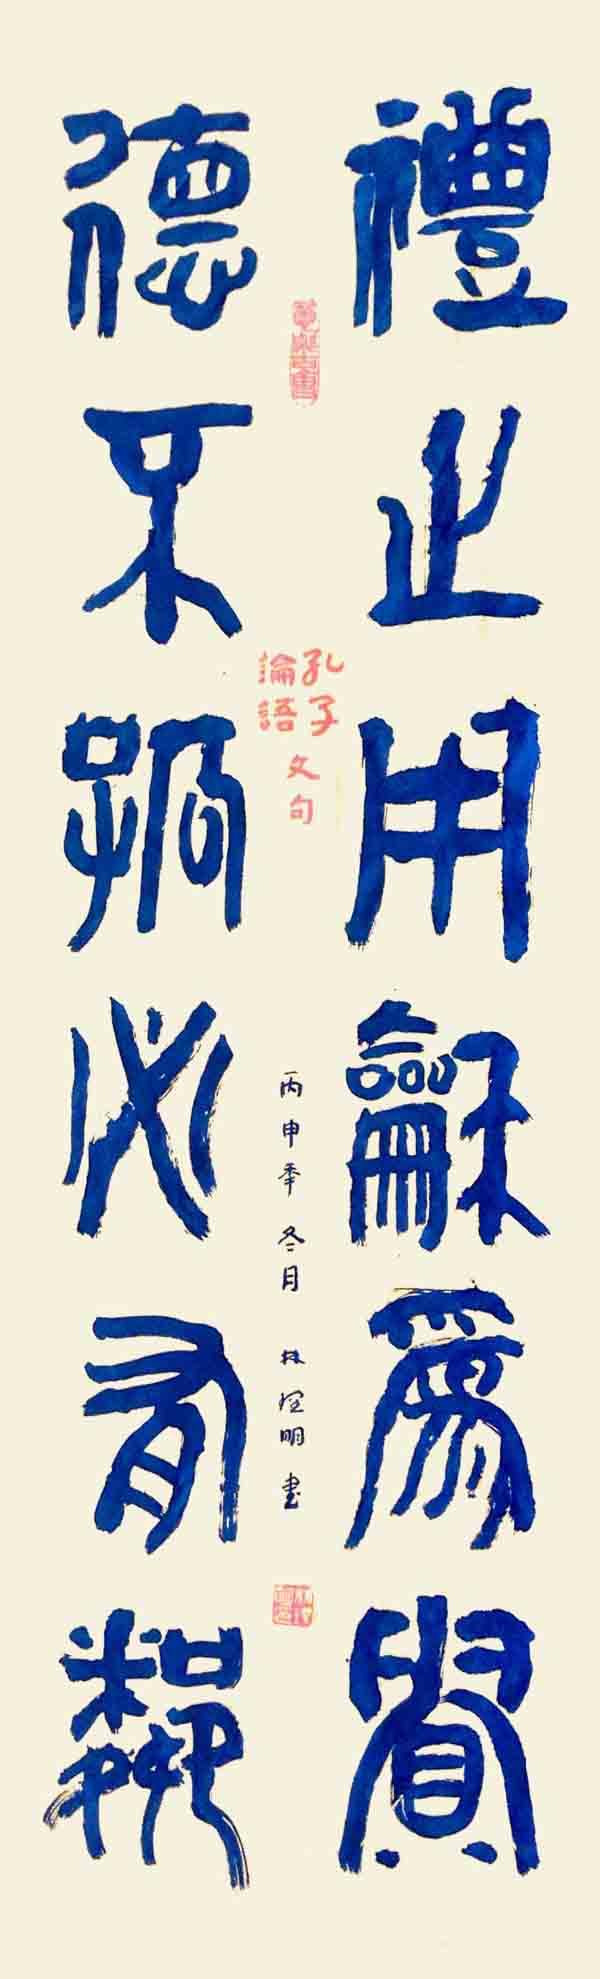 禮之用龢爲貴
德不孤必有鄰
孔子
論語
文句
丙申年冬月 林明書